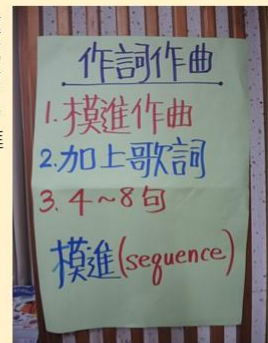 作詞作曲
1.模進作曲
2.加上歌詞
3.4~8句
模進(sequence)